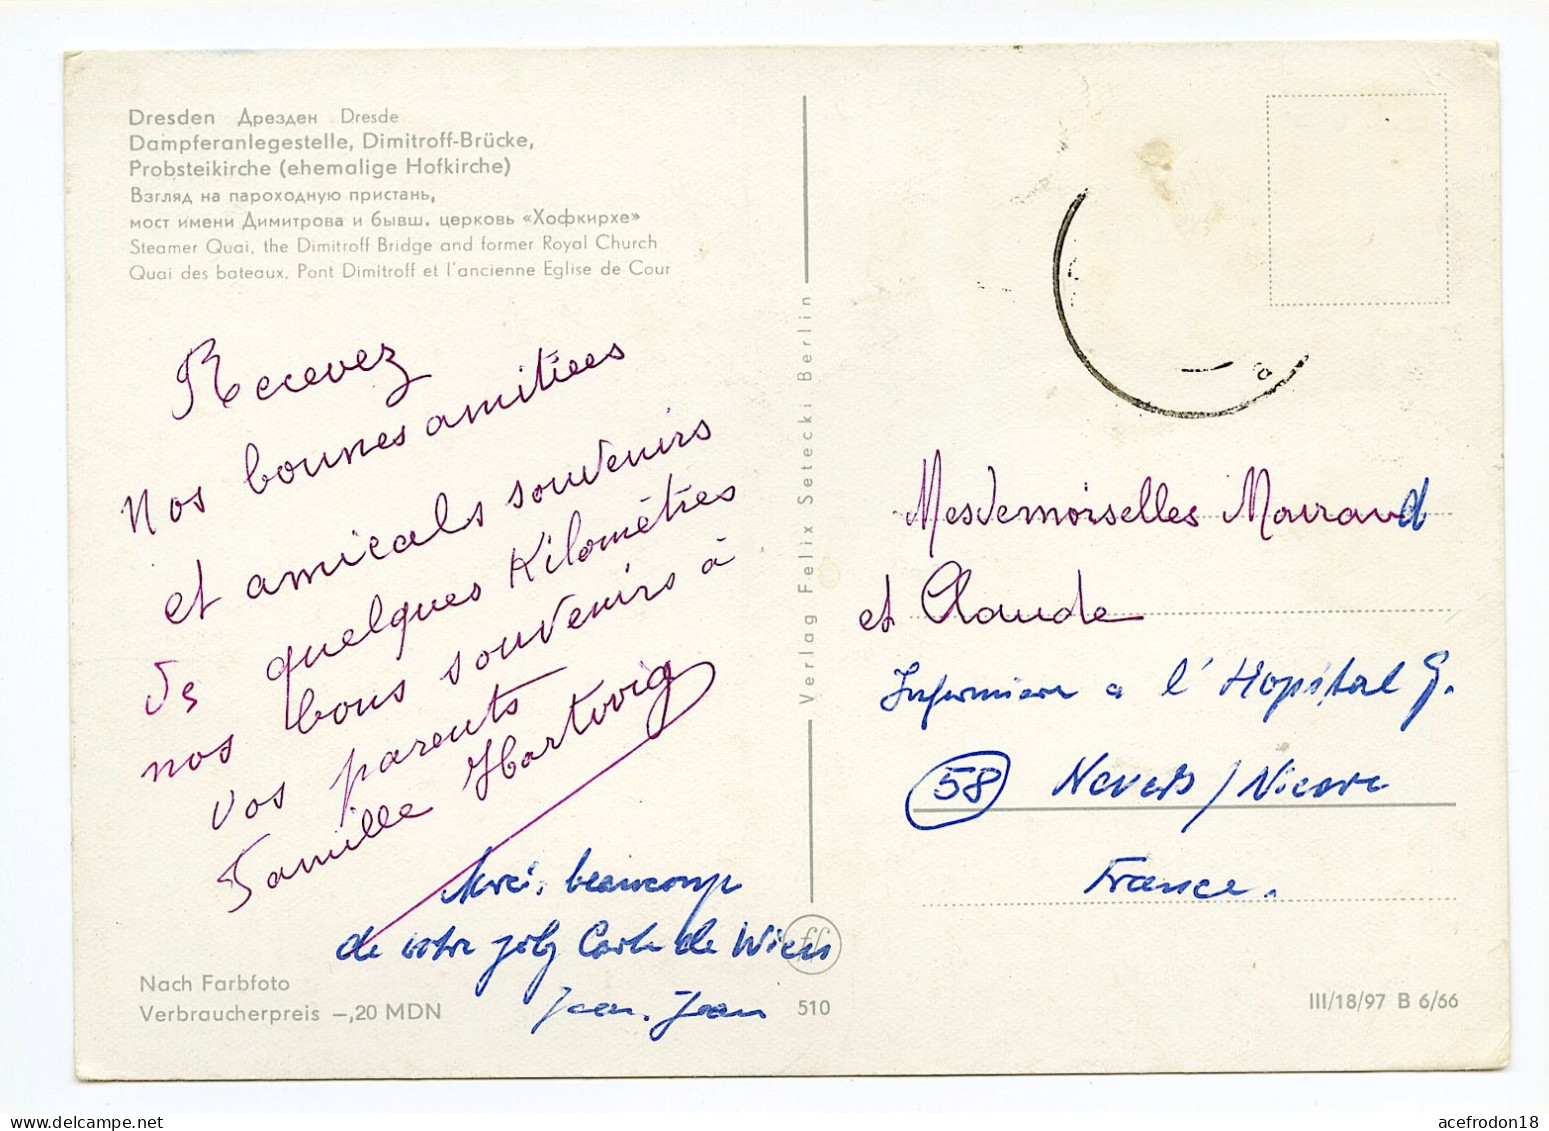 Dresden Дрезден Dresde
Dampferanlegestelle, Dimitroff-Brücke,
Probsteikirche (ehemalige Hofkirche)
Взгляд на пароходную пристань,
мост имени Димитрова и бывш. церковь «Хофкирхе»
Steamer Quai, the Dimitroff Bridge and former Royal Church
Quai des bateaux, Pont Dimitroff et l'ancienne Eglise de Cour
Recevez
nos bonnes amitiees
et amicals souvenirs
de quelques Kilomètres
nos bons souvenirs à
vos parents
Famille Hartwig
Merci, beaucoup
de votre joly Carte de Wien
Jean. Jean
Nach Farbfoto
Verbraucherpreis –,20 MDN
Verlag Felix Setecki Berlin
ff
510
Mesdemoiselles Mouraud
et Claude
Infirmiere a l'Hopital G.
58 Nevers / Nievre
France.
III/18/97 B 6/66
acefrodon18